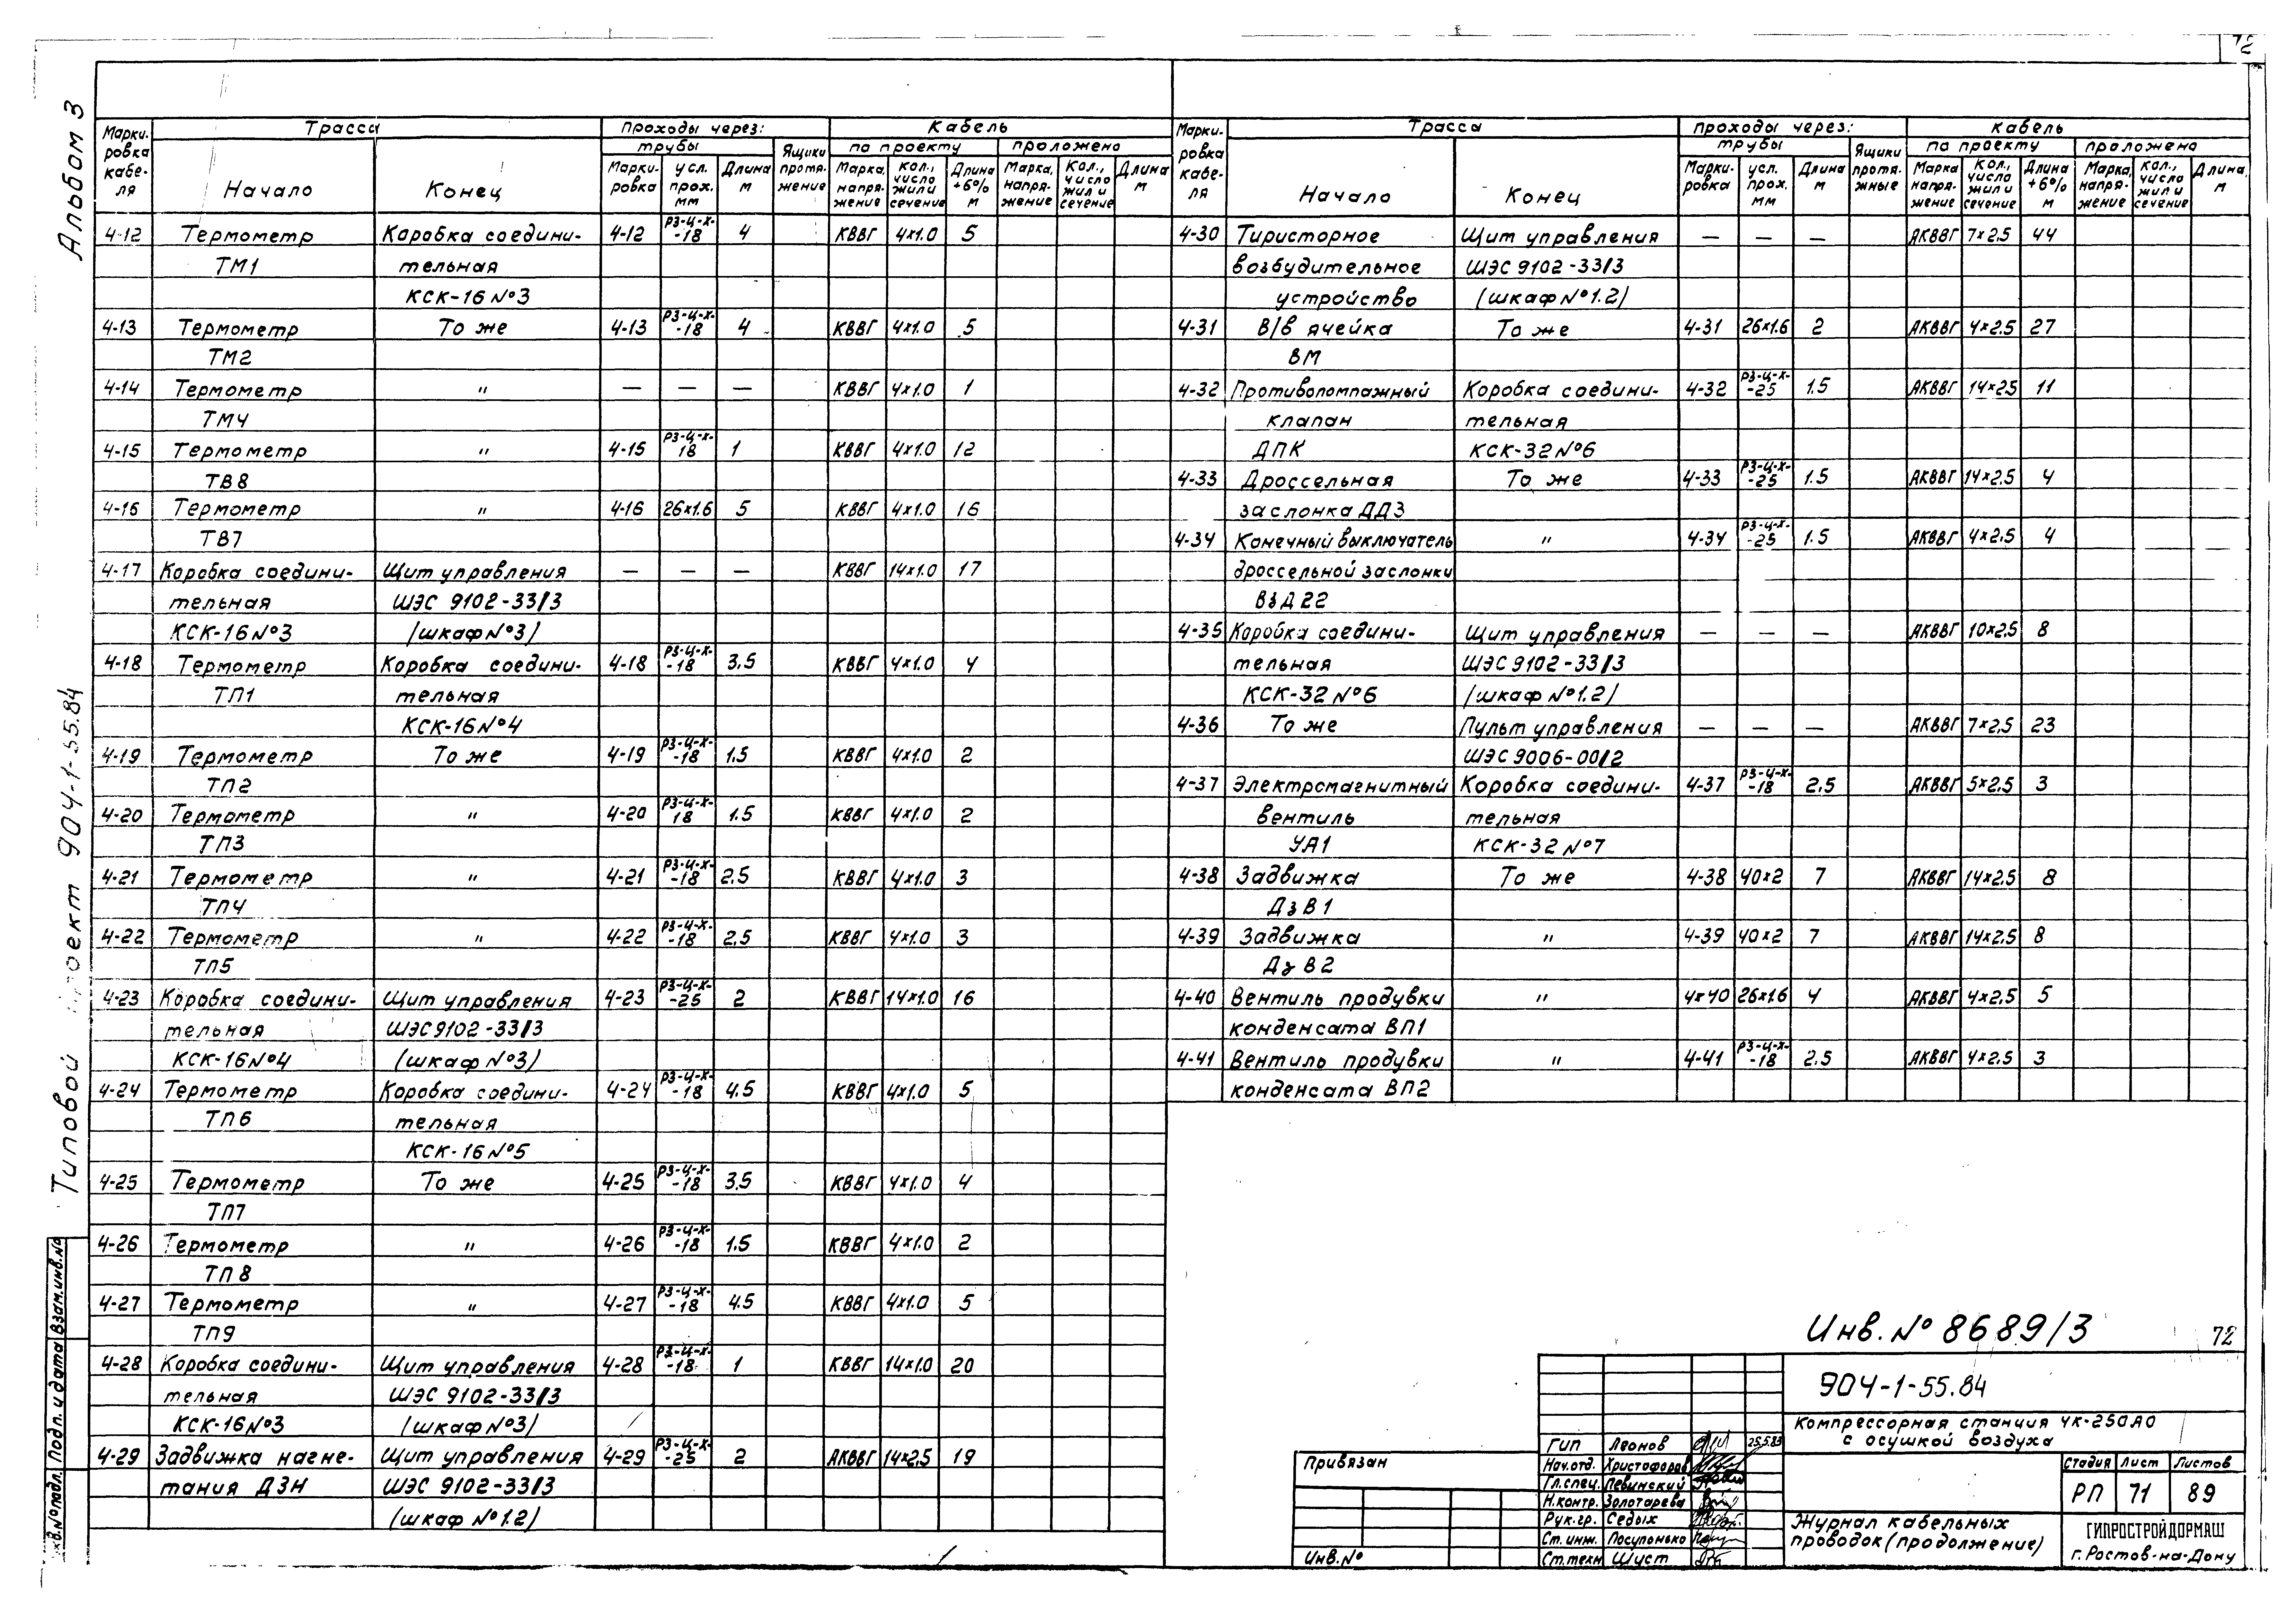 72
Альбом 3
Типовой проект 904-1-55.84
Взам.инв.№
Подп. и дата
Инв.№ подл.
Марки-ровка кабе-ля | Трасса | проходы через: | Кабель
трубы | Ящики протя-жение | по проекту | проложено
Начало | Конец | Марки-ровка | усл. прох. мм | Длина м | Марка, напря-жение | Кол., число жил и сечение | Длина +6% м | Марка, напря-жение | Кол., число жил и сечение | Длина м
4-12 Термометр Коробка соедини- 4-12 РЗ-Ц-Х--18 4 КВВГ 4×1.0 5
ТМ1 тельная
КСК-16 №3
4-13 Термометр То же 4-13 РЗ-Ц-Х--18 4 КВВГ 4×1.0 5
ТМ2
4-14 Термометр " — — — КВВГ 4×1.0 1
ТМ4
4-15 Термометр " 4-15 РЗ-Ц-Х-18 1 КВВГ 4×1.0 12
ТВ8
4-16 Термометр " 4-16 26×1.6 5 КВВГ 4×1.0 16
ТВ7
4-17 Коробка соедини- Щит управления — — — КВВГ 14×1.0 17
тельная ШЭС 9102-33/3
КСК-16 №3 (шкаф №3)
4-18 Термометр Коробка соедини- 4-18 РЗ-Ц-Х--18 3.5 КВВГ 4×1.0 4
ТП1 тельная
КСК-16 №4
4-19 Термометр То же 4-19 РЗ-Ц-Х--18 1.5 КВВГ 4×1.0 2
ТП2
4-20 Термометр " 4-20 РЗ-Ц-Х-18 1.5 КВВГ 4×1.0 2
ТП3
4-21 Термометр " 4-21 РЗ-Ц-Х--18 2.5 КВВГ 4×1.0 3
ТП4
4-22 Термометр " 4-22 РЗ-Ц-Х--18 2.5 КВВГ 4×1.0 3
ТП5
4-23 Коробка соедини- Щит управления 4-23 РЗ-Ц-Х--25 2 КВВГ 14×1.0 16
тельная ШЭС 9102-33/3
КСК-16 №4 (шкаф №3)
4-24 Термометр Коробка соедини- 4-24 РЗ-Ц-Х--18 4.5 КВВГ 4×1.0 5
ТП6 тельная
КСК-16 №5
4-25 Термометр То же 4-25 РЗ-Ц-Х--18 3.5 КВВГ 4×1.0 4
ТП7
4-26 Термометр " 4-26 РЗ-Ц-Х--18 1.5 КВВГ 4×1.0 2
ТП8
4-27 Термометр " 4-27 РЗ-Ц-Х--18 4.5 КВВГ 4×1.0 5
ТП9
4-28 Коробка соедини- Щит управления 4-28 РЗ-Ц-Х--18 1 КВВГ 14×1.0 20
тельная ШЭС 9102-33/3
КСК-16 №3 (шкаф №3)
4-29 Задвижка нагне- Щит управления 4-29 РЗ-Ц-Х--25 2 АКВВГ 14×2.5 19
тания ДЗН ШЭС 9102-33/3
(шкаф №1.2)
Марки-ровка кабе-ля | Трасса | проходы через: | кабель
трубы | Ящики протя-жные | по проекту | проложено
Начало | Конец | Марки-ровка | усл. прох. мм | Длина м | Марка напря-жение | Кол., число жил и сечение | Длина +6% м | Марка, напря-жение | Кол., число жил и сечение | Длина, м
4-30 Тиристорное Щит управления — — — АКВВГ 7×2.5 44
возбудительное ШЭС 9102-33/3
устройство (шкаф №1.2)
4-31 В/в ячейка То же 4-31 26×1.6 2 АКВВГ 4×2.5 27
ВМ
4-32 Противопомпажный Коробка соедини- 4-32 РЗ-Ц-Х--25 1.5 АКВВГ 14×2.5 11
клапан тельная
ДПК КСК-32 №6
4-33 Дроссельная То же 4-33 РЗ-Ц-Х--25 1.5 АКВВГ 14×2.5 4
заслонка ДДЗ
4-34 Конечный выключатель " 4-34 РЗ-Ц-Х--25 1.5 АКВВГ 4×2.5 4
дроссельной заслонки
ВзД22
4-35 Коробка соедини- Щит управления — — — АКВВГ 10×2.5 8
тельная ШЭС 9102-33/3
КСК-32 №6 (шкаф №1.2)
4-36 То же Пульт управления — — — АКВВГ 7×2.5 23
ШЭС 9006-00/2
4-37 Электромагнитный Коробка соедини- 4-37 РЗ-Ц-Х--18 2.5 АКВВГ 5×2.5 3
вентиль тельная
УА1 КСК-32 №7
4-38 Задвижка То же 4-38 40×2 7 АКВВГ 14×2.5 8
ДзВ1
4-39 Задвижка " 4-39 40×2 7 АКВВГ 14×2.5 8
ДзВ2
4-40 Вентиль продувки " 4-40 26×1.6 4 АКВВГ 4×2.5 5
конденсата ВП1
4-41 Вентиль продувки " 4-41 РЗ-Ц-Х--18 2.5 АКВВГ 4×2.5 3
конденсата ВП2
Инв. № 8689/3 72
904-1-55.84
Компрессорная станция 4К-250А0
с осушкой воздуха
Гип Леонов 25.5.83
Нач.отд. Христофоров
Гл.спец. Левинский
Н.контр. Золотарева
Рук.гр. Седых
Ст.инж. Посупонько
Ст.техн Шуст
Привязан
Инв.№
Стадия Лист Листов
РП 71 89
Журнал кабельных
проводок (продолжение)
ГИПРОСТРОЙДОРМАШ
г. Ростов-на-Дону